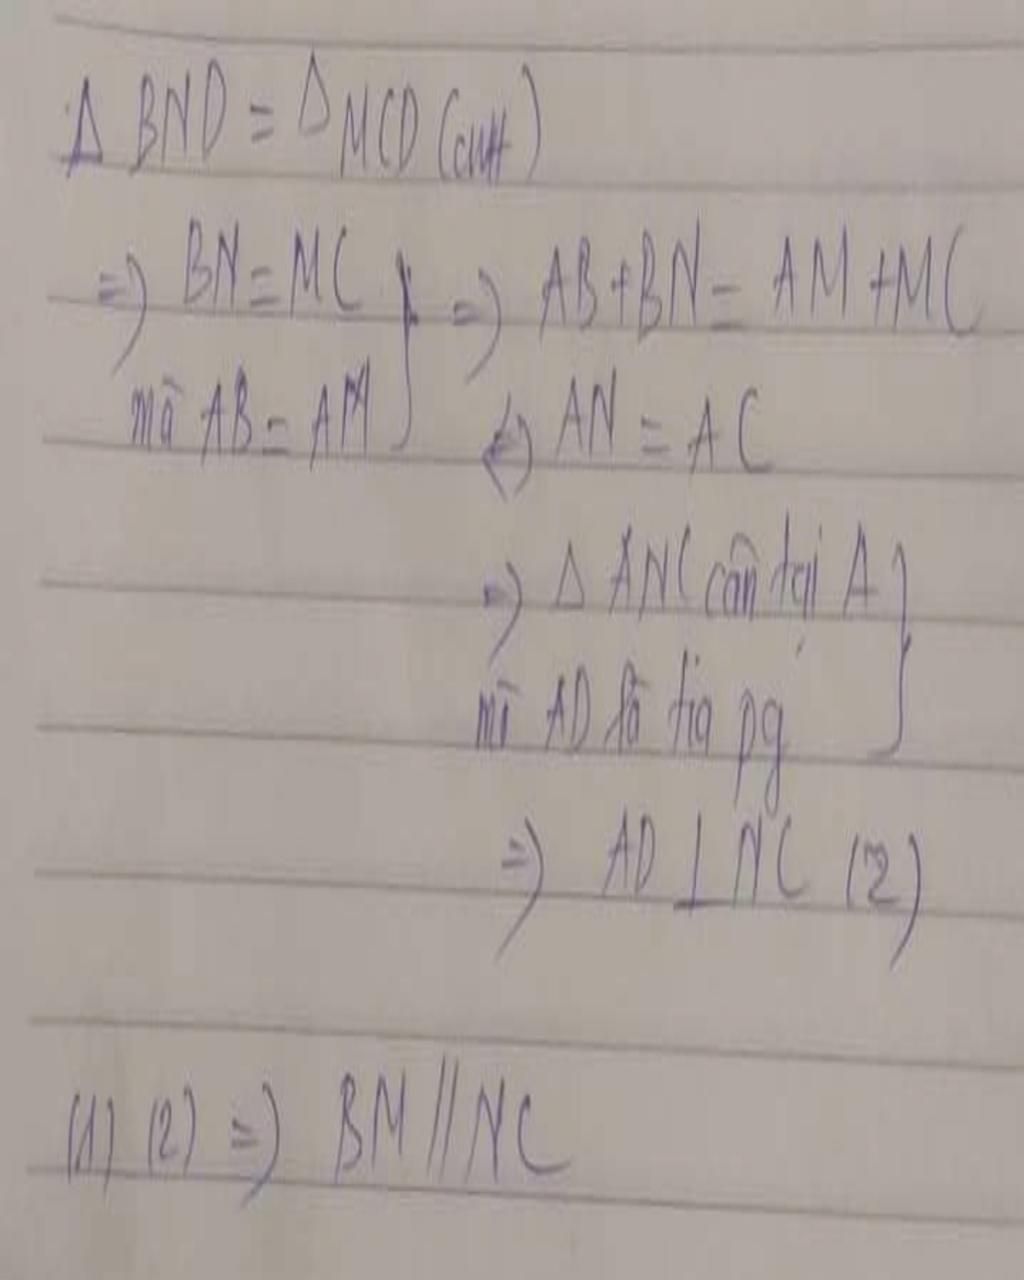 Δ BND = Δ MCD (cmt)
=) BN = MC } =) AB + BN = AM + MC
mà AB = AM
(=) AN = AC
=) Δ ANC cân tại A }
mà AD là tia pg
=) AD ⊥ NC (2)
(1) (2) =) BM // NC